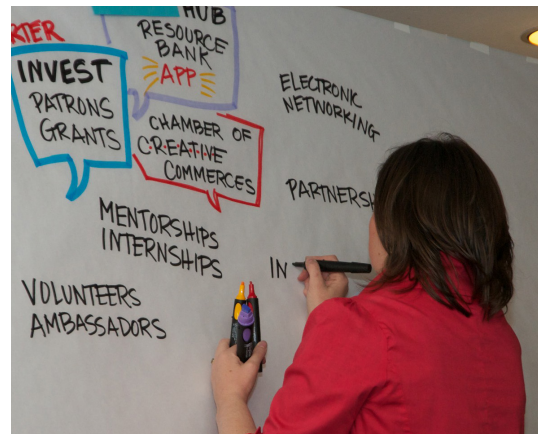 HUB
RESOURCE
BANK
APP
INVEST
PATRONS
GRANTS
CHAMBER OF
CREATIVE
COMMERCES
ELECTRONIC
NETWORKING
MENTORSHIPS
INTERNSHIPS
IN
VOLUNTEERS
AMBASSADORS